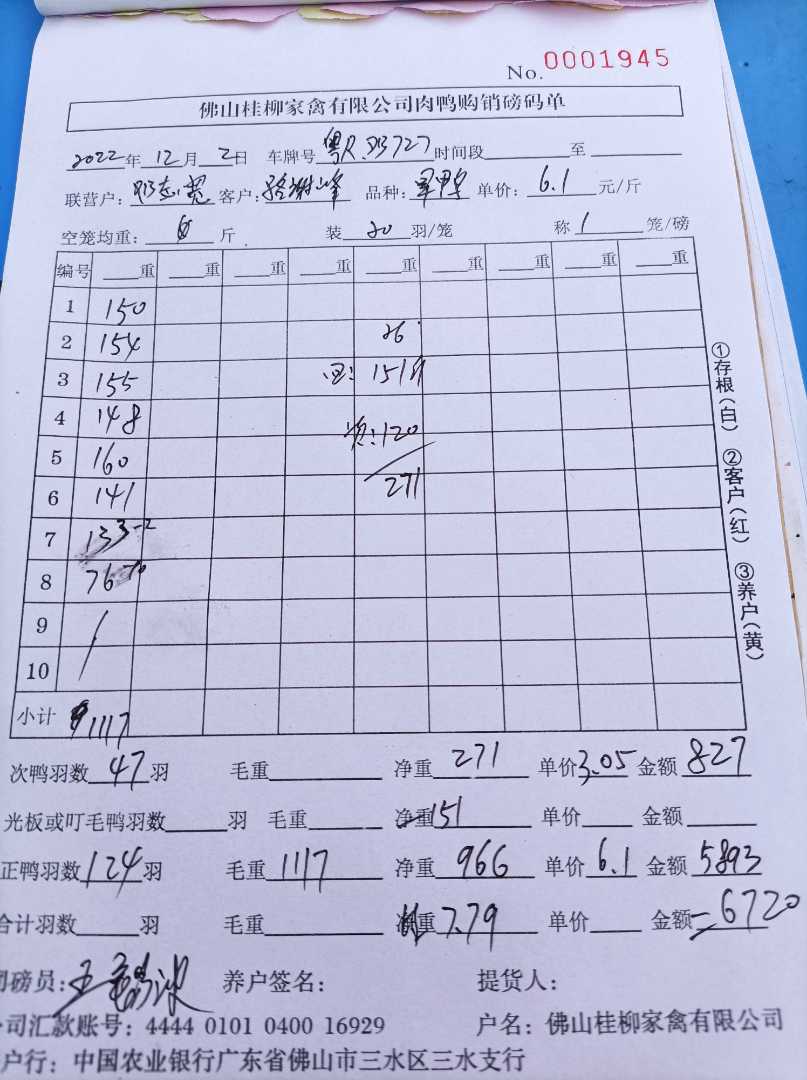 No. 0001945
佛山桂柳家禽有限公司肉鸭购销磅码单
2022年 12月 2日 车牌号 粤R 时间段 至
联营户: 客户: 品种: 单价: 6.1 元/斤
空笼均重: 斤 装 20 羽/笼 称 1 笼/磅
编号 重 重 重 重 重 重 重 重 重
1 150
2 154 26
3 155 151斤
4 148 120
5 160
6 141 271
7 133-2
8 76
9
10
小计 1117
①存根(白) ②客户(红) ③养户(黄)
次鸭羽数 47 羽 毛重 净重 271 单价 3.05 金额 827
光板或叮毛鸭羽数 羽 毛重 净重 151 单价 金额
正鸭羽数 124 羽 毛重 1117 净重 966 单价 6.1 金额 5893
合计羽数 羽 毛重 重 7.79 单价 金额 = 6720
磅员: 养户签名: 提货人:
司汇款账号: 4444 0101 0400 16929 户名: 佛山桂柳家禽有限公司
户行: 中国农业银行广东省佛山市三水区三水支行